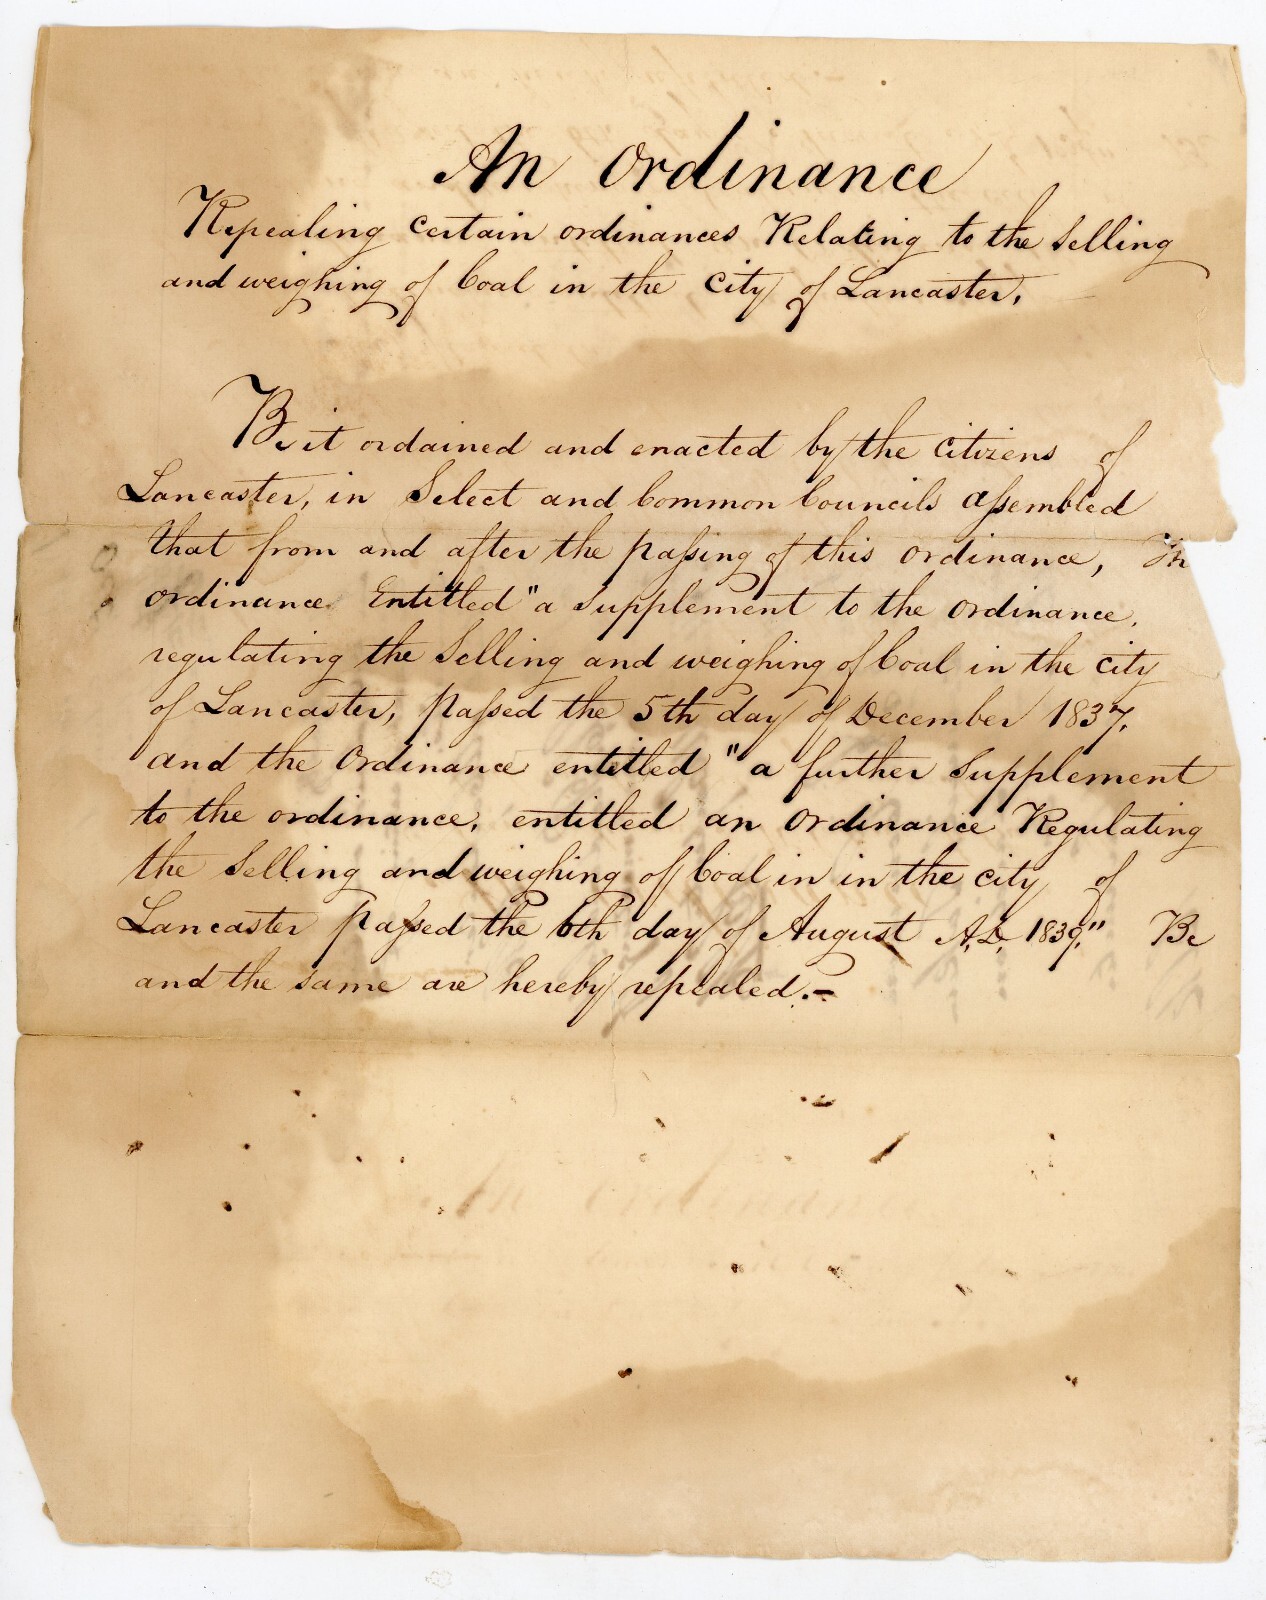 An Ordinance
Repealing certain ordinances Relating to the Selling
and weighing of Coal in the City of Lancaster.
Be it ordained and enacted by the Citizens of
Lancaster, in Select and Common Councils assembled
that from and after the passing of this ordinance, Th
ordinance Entitled "a Supplement to the ordinance,
regulating the Selling and weighing of Coal in the city
of Lancaster, passed the 5th day of December 1837.
and the Ordinance entitled "a further Supplement
to the ordinance, entitled an Ordinance Regulating
the Selling and weighing of Coal in in the city of
Lancaster passed the 6th day of August A.D. 1839." Be
and the same are hereby repealed.-